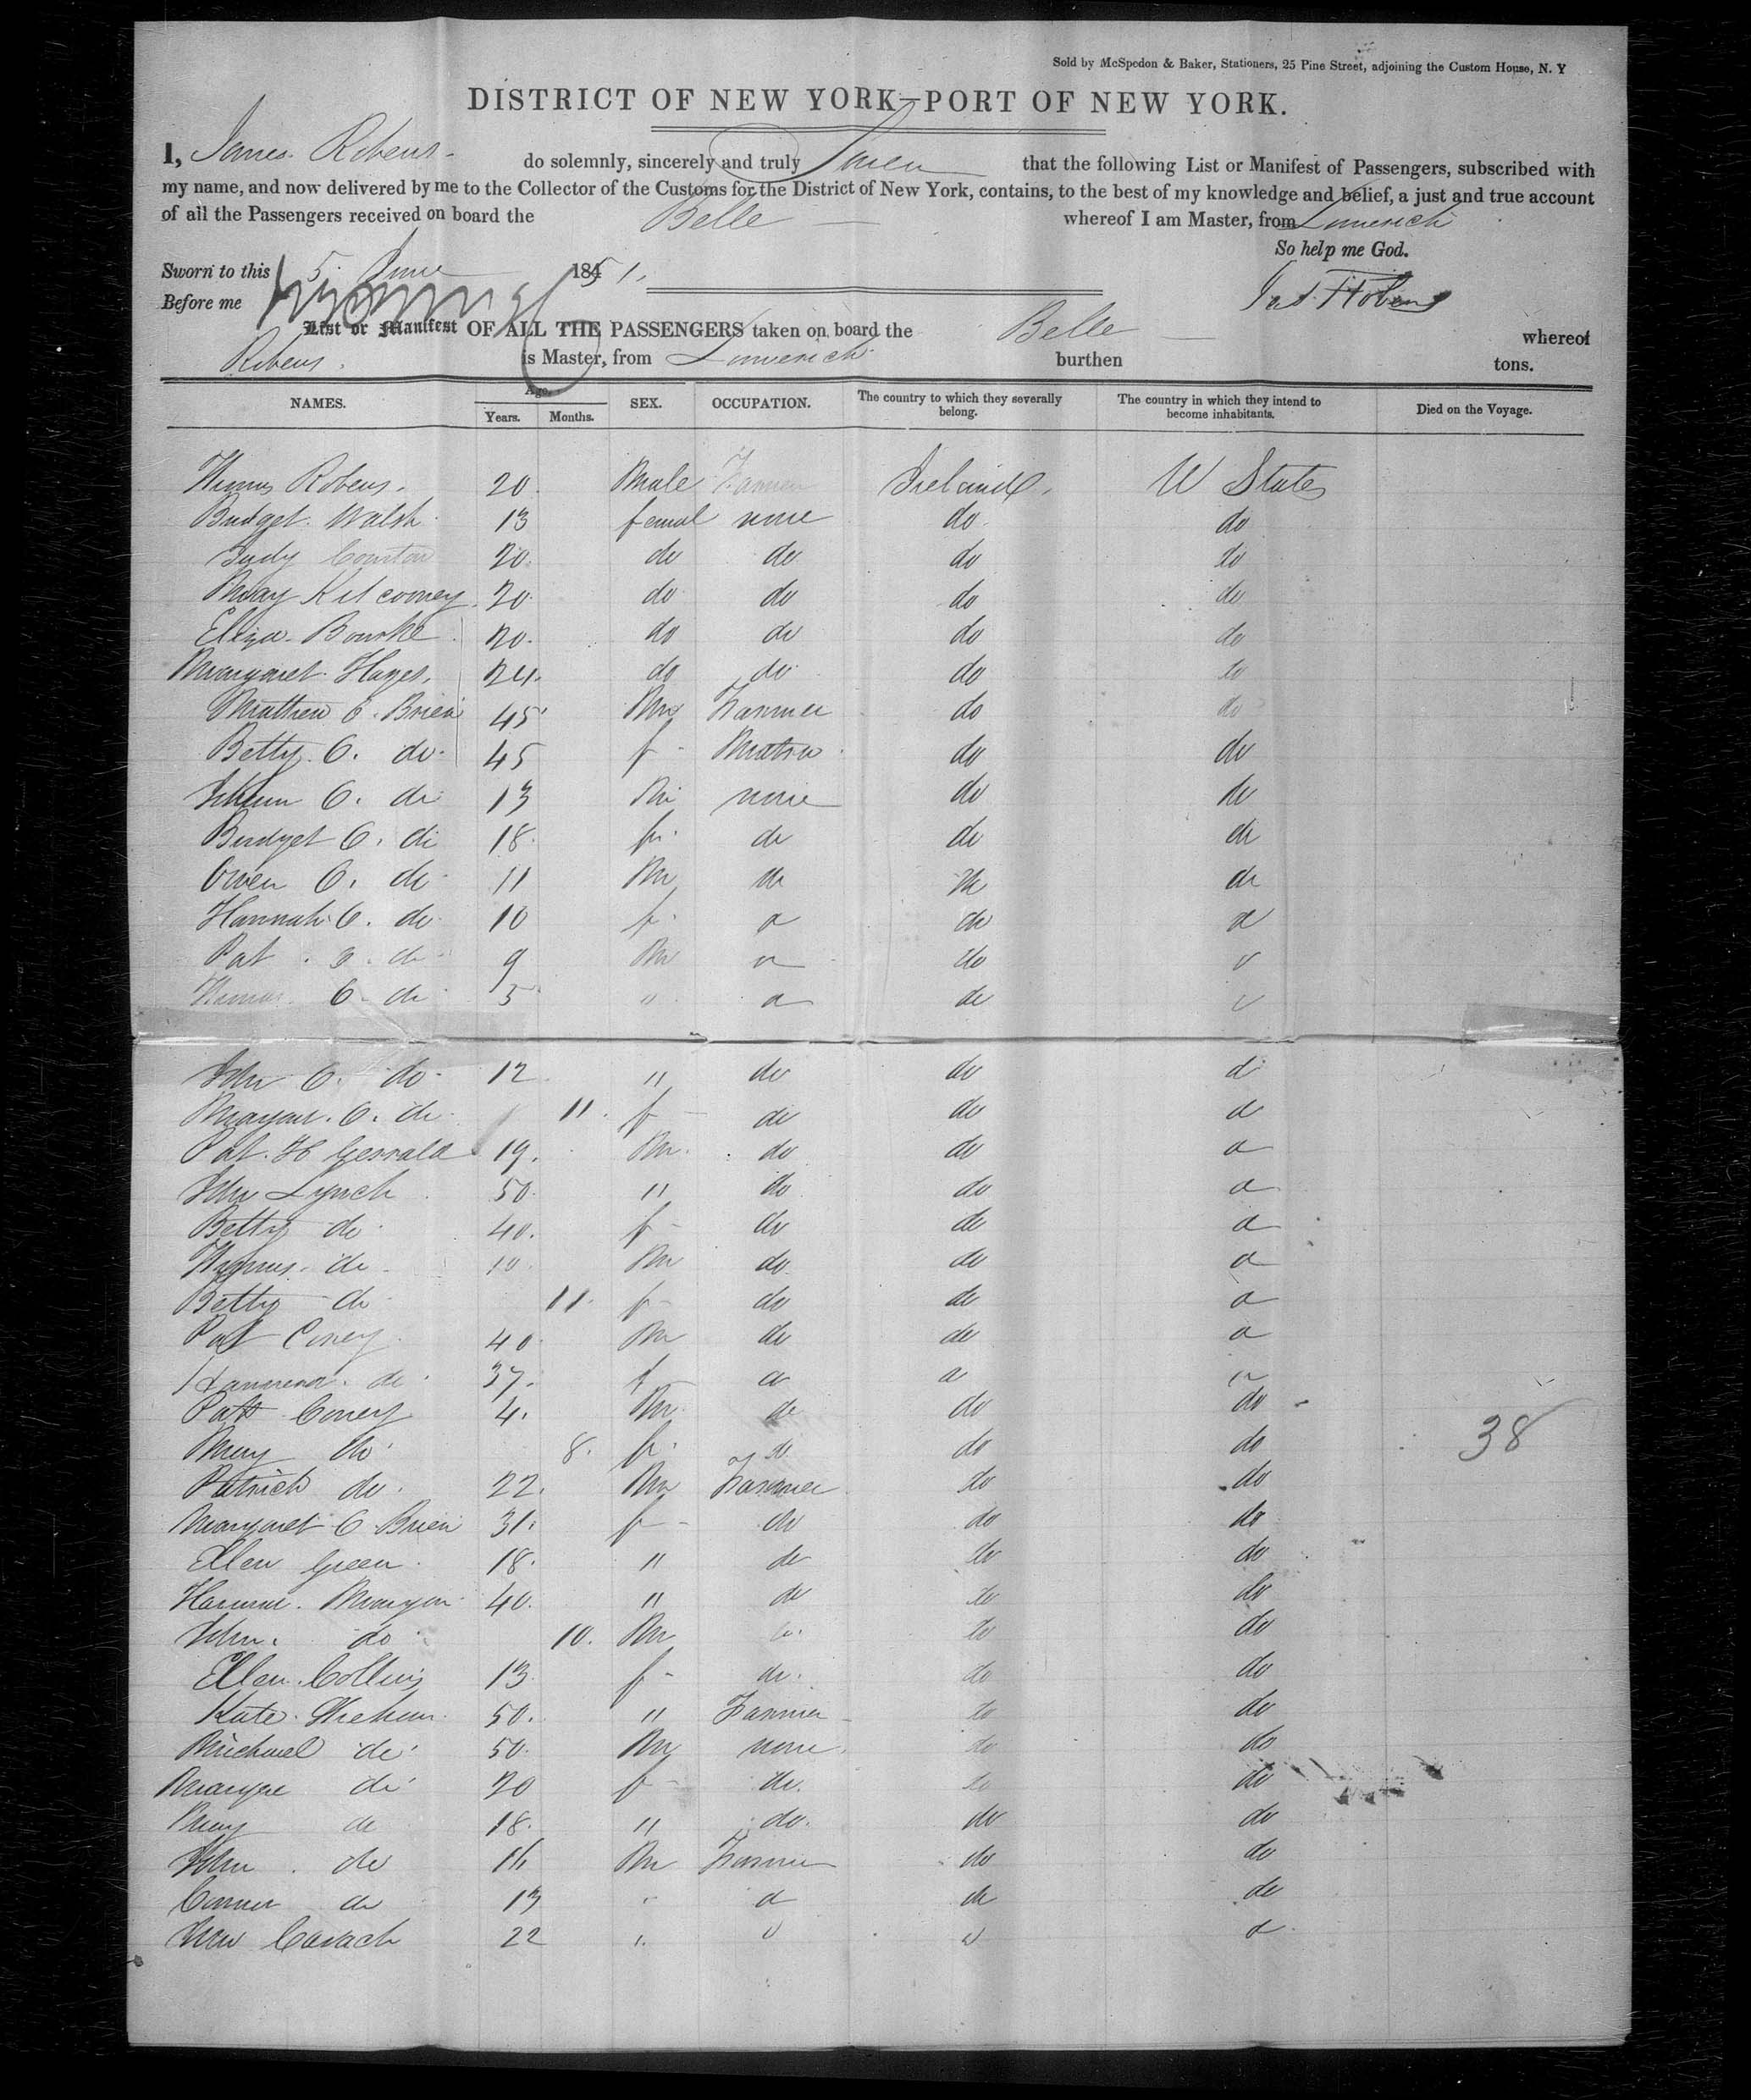 Sold by McSpedon & Baker, Stationers, 25 Pine Street, adjoining the Custom House, N. Y
DISTRICT OF NEW YORK—PORT OF NEW YORK.
I, James Robens do solemnly, sincerely and truly Swear that the following List or Manifest of Passengers, subscribed with
my name, and now delivered by me to the Collector of the Customs for the District of New York, contains, to the best of my knowledge and belief, a just and true account
of all the Passengers received on board the Belle whereof I am Master, from Limerick
So help me God.
Sworn to this 5 June 1851.
Before me
List or Manifest OF ALL THE PASSENGERS taken on board the Belle whereof
Robens is Master, from Limerick burthen tons.
NAMES. Age. SEX. OCCUPATION. The country to which they severally belong. The country in which they intend to become inhabitants. Died on the Voyage.
Years. Months.
Robens. 20. Male Farmer Ireland. U States
Bridget Walsh 13 femal none do do
Judy 20. do do do do
Mary Kilcooney 20. do do do do
Eliza Bourke 20. do do do do
Margaret Hayes. 24. do do do do
Matthew O. Brien 45 M Farmer do do
Betty O. do 45 f Matron do do
O. do 13 M none do do
Bridget O. do 18. f. do do do
Owen O. do 11 M do do do
Hannah O. do 10 f. do do do
Pat O. do 9 M do do do
Thomas O. do 5 " do do do
John O. do 12 " do do do
O. do 11. f do do do
Pat 19. M. do do do
John Lynch 50. " do do do
Betty do 40. f do do do
do 10. M do do do
Betty do 11. f do do do
Pat Coney 40. M do do do
do 37. f do do do
Pat Coney 4. M do do do
Mary do 8. f. do do do 38
Patrick do 22. M Farmer do do
Margaret O Brien 31. f do do do
Ellen Green 18. " do do do
40. " do do do
John. do 10. M do do do
Ellen Collins 13. f do do do
Kate 50. " Farmer do do
Michael do 50. M none do do
do 20 f do do do
Mary do 18. " do do do
John do 16 M Farmer do do
do 13 " do do do
22 " do do do